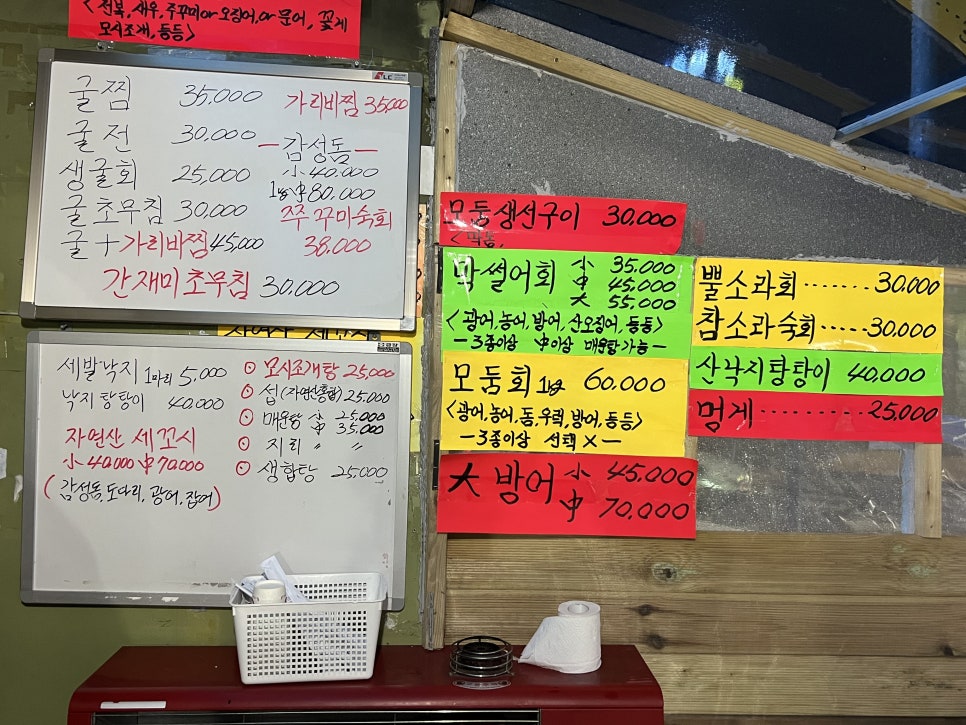 <전복, 새우, 주꾸미or 오징어, or 문어, 꽃게
모시조개, 등등>
굴찜 35,000
굴전 30,000
생굴회 25,000
굴초무침 30,000
굴+가리비찜 45,000
간재미초무침 30,000
가리비찜 35,000
ー감성돔ー
小 40,000
1kg 中 80,000
쭈꾸미숙회
38,000
세발낙지 1마리 5,000
낙지탕탕이 40,000
자연산 세꼬시
小 40,000 中 70,000
(감성돔, 도다리, 광어, 잡어)
⊙ 모시조개탕 25,000
⊙ 섭(자연산홍합) 25,000
⊙ 매운탕 小 25,000
中 35,000
⊙ 지리 〃 〃
⊙ 생합탕 25,000
모둠생선구이 30,000
막썰어회 小 35,000
中 45,000
大 55,000
<광어, 농어, 방어, 산오징어, 등등>
ー3종이상 中이상 매운탕가능ー
모둠회 1kg 60,000
<광어, 농어, 돔, 우럭, 방어, 등등>
ー3종이상 선택 Xー
大 방어 小 45,000
中 70,000
뿔소라회 ······· 30,000
참소라숙회 ····· 30,000
산낙지탕탕이 40,000
멍게 ·········· 25,000